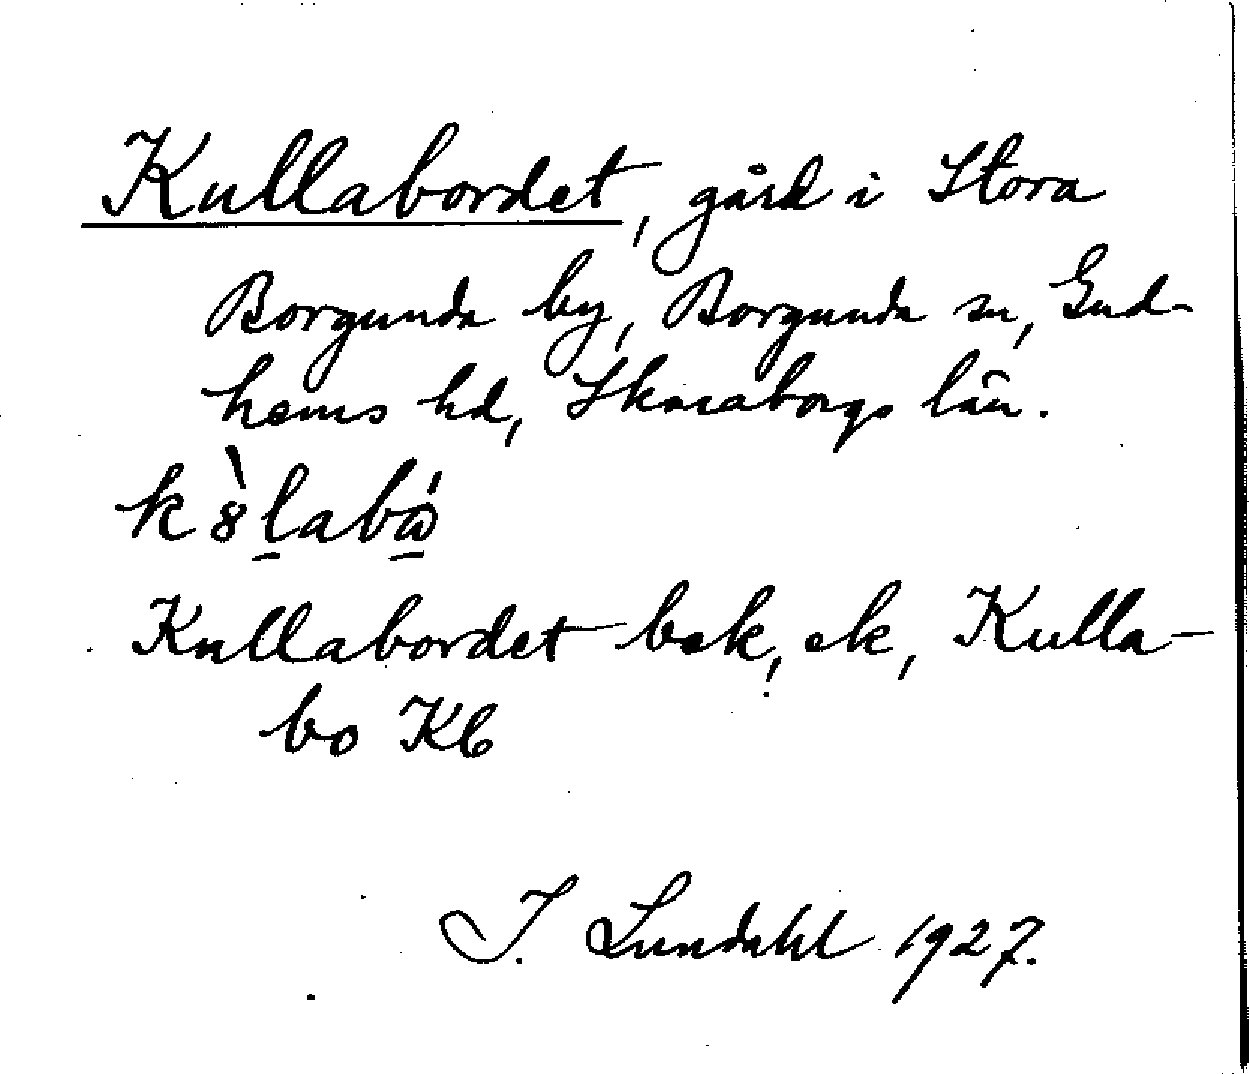 Kullabordet, gård i Stora
Borgunda by, Borgunda sn, Gud-
hems hd, Skaraborgs län.
k8̀l̠abɷ̠́
Kullabordet bek, ek, Kulla-
bo Kb
I. Lundahl 1927.